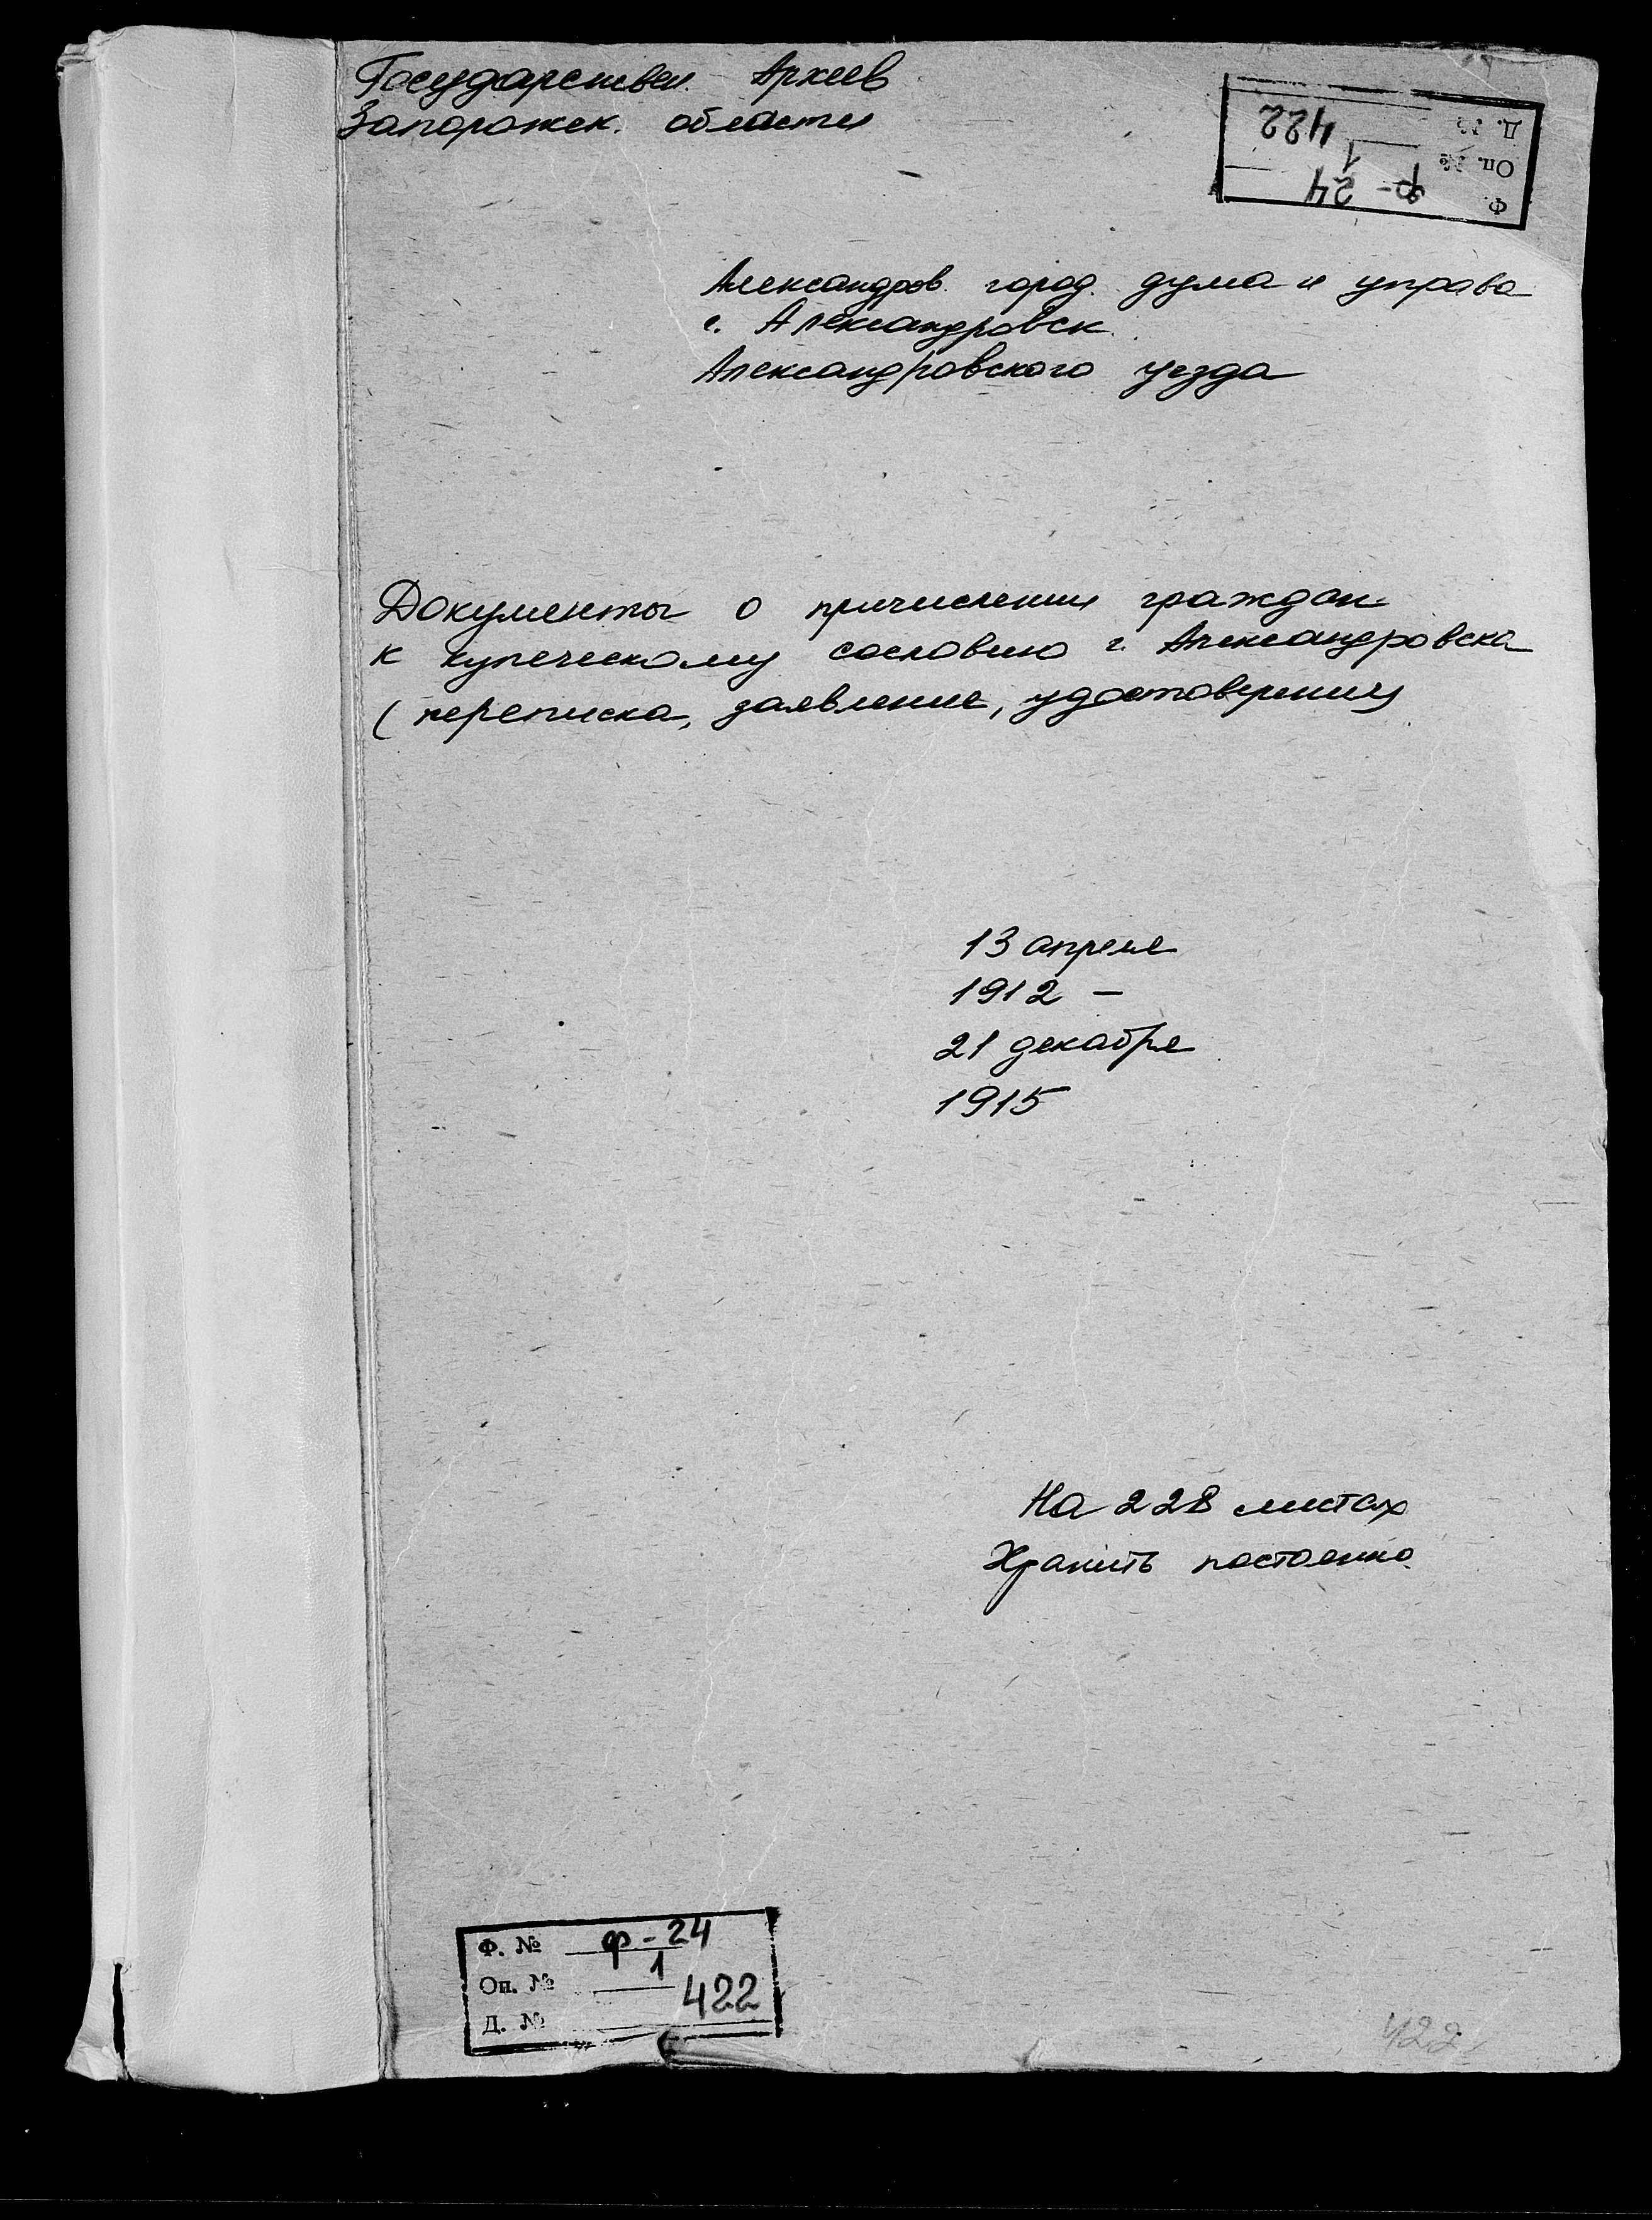 Государствен. Архив
Запорожск. области
Ф. ф-24
Оп. № 1
Д. № 422
Александров. город. дума и управа
г. Александровск.
Александровского уезда
Документы о причислении граждан
к купеческому сословию г. Александровска
(переписка, заявление, удостоверения)
13 апреля
1912 –
21 декабря
1915
На 228 листах
Хранить постоянно.
Ф. № ф-24
Оп. № 1
Д. № 422
422